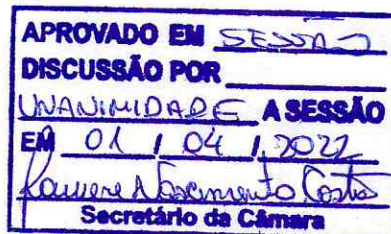 APROVADO EM SESSÃO
DISCUSSÃO POR
UNANIMIDADE A SESSÃO
EM 01 / 04 / 2022
Nascimento Costa
Secretário da Câmara